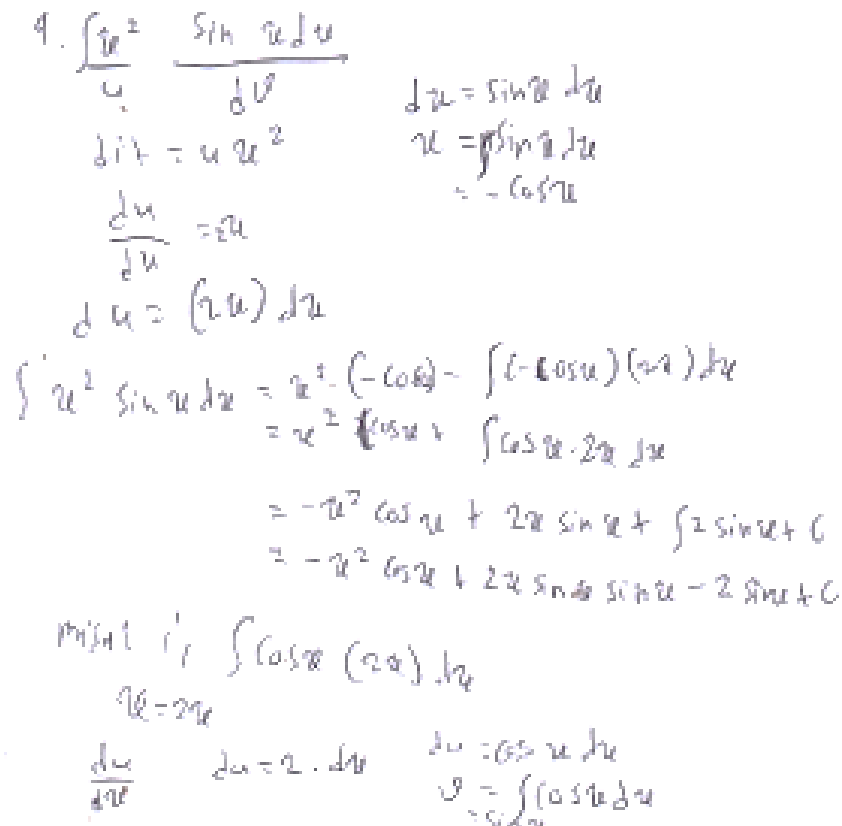 9. ∫x² sin x dx
u dv
dit = u x²
dv = sin x dx
v = ∫sin x dx
= - cos x
du/dx = 2x
du = (2x) dx
∫ x² sin x dx = x² (-cos x) - ∫(-cos x)(2x) dx
= x² cos x + ∫cos x . 2x dx
= -x² cos x + 2x sin x + ∫2 sin x + C
= -x² cos x + 2x sin x - 2 sin x + C
misal ∫cos x (2x) dx
u = 2x
du/dx du = 2 . dx dv = cos x dx
v = ∫cos x dx